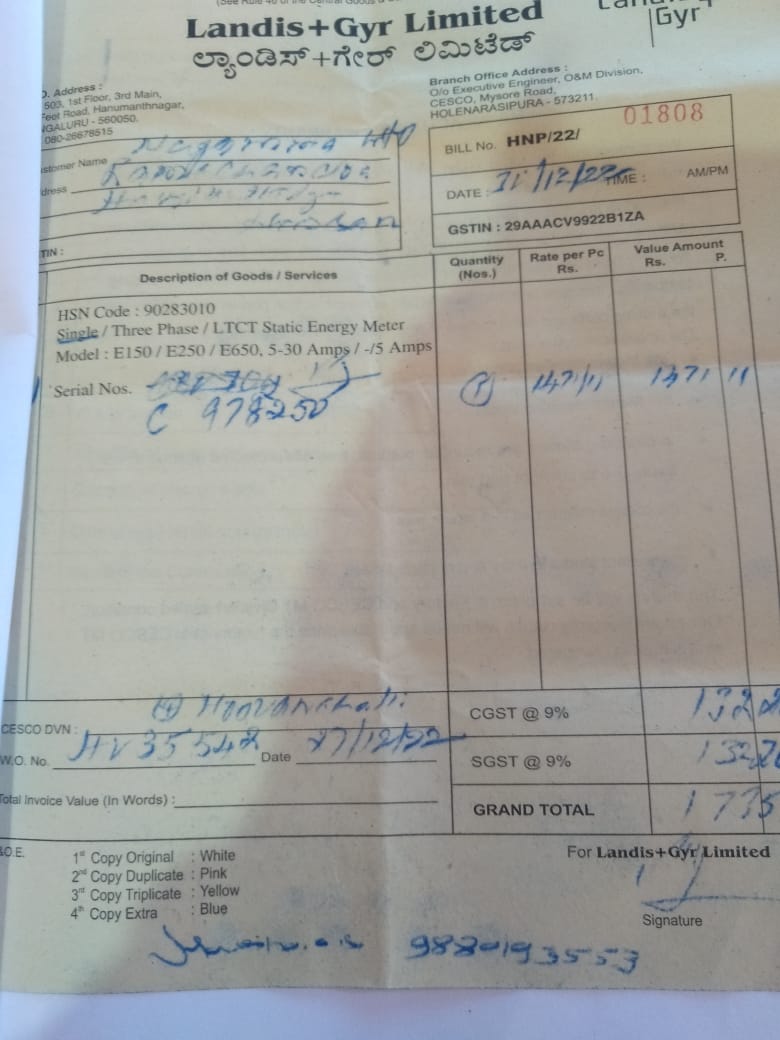 Landis+Gyr Limited
ಲ್ಯಾಂಡಿಸ್+ಗೇರ್ ಲಿಮಿಟೆಡ್
Gyr
Address :
503, 1st Floor, 3rd Main,
Feet Road, Hanumanthnagar,
560050.
080-26678515
Branch Office Address :
O/o Executive Engineer, O&M Division,
CESCO, Mysore Road,
HOLENARASIPURA - 573211.
01808
BILL No. HNP/22/
DATE : /12/22 TIME : AM/PM
GSTIN : 29AAACV9922B1ZA
Customer Name
TIN :
Description of Goods / Services
Quantity (Nos.)
Rate per Pc Rs.
Value Amount Rs. P.
HSN Code : 90283010
Single / Three Phase / LTCT Static Energy Meter
Model : E150 / E250 / E650, 5-30 Amps / -/5 Amps
Serial Nos.
C 978250
1 1471/11 1471 11
CESCO DVN :
W.O. No. 35542 Date 27/12/22
Total Invoice Value (In Words) :
CGST @ 9%
SGST @ 9%
GRAND TOTAL 1735
1st Copy Original : White
2nd Copy Duplicate : Pink
3rd Copy Triplicate : Yellow
4th Copy Extra : Blue
For Landis+Gyr Limited
Signature